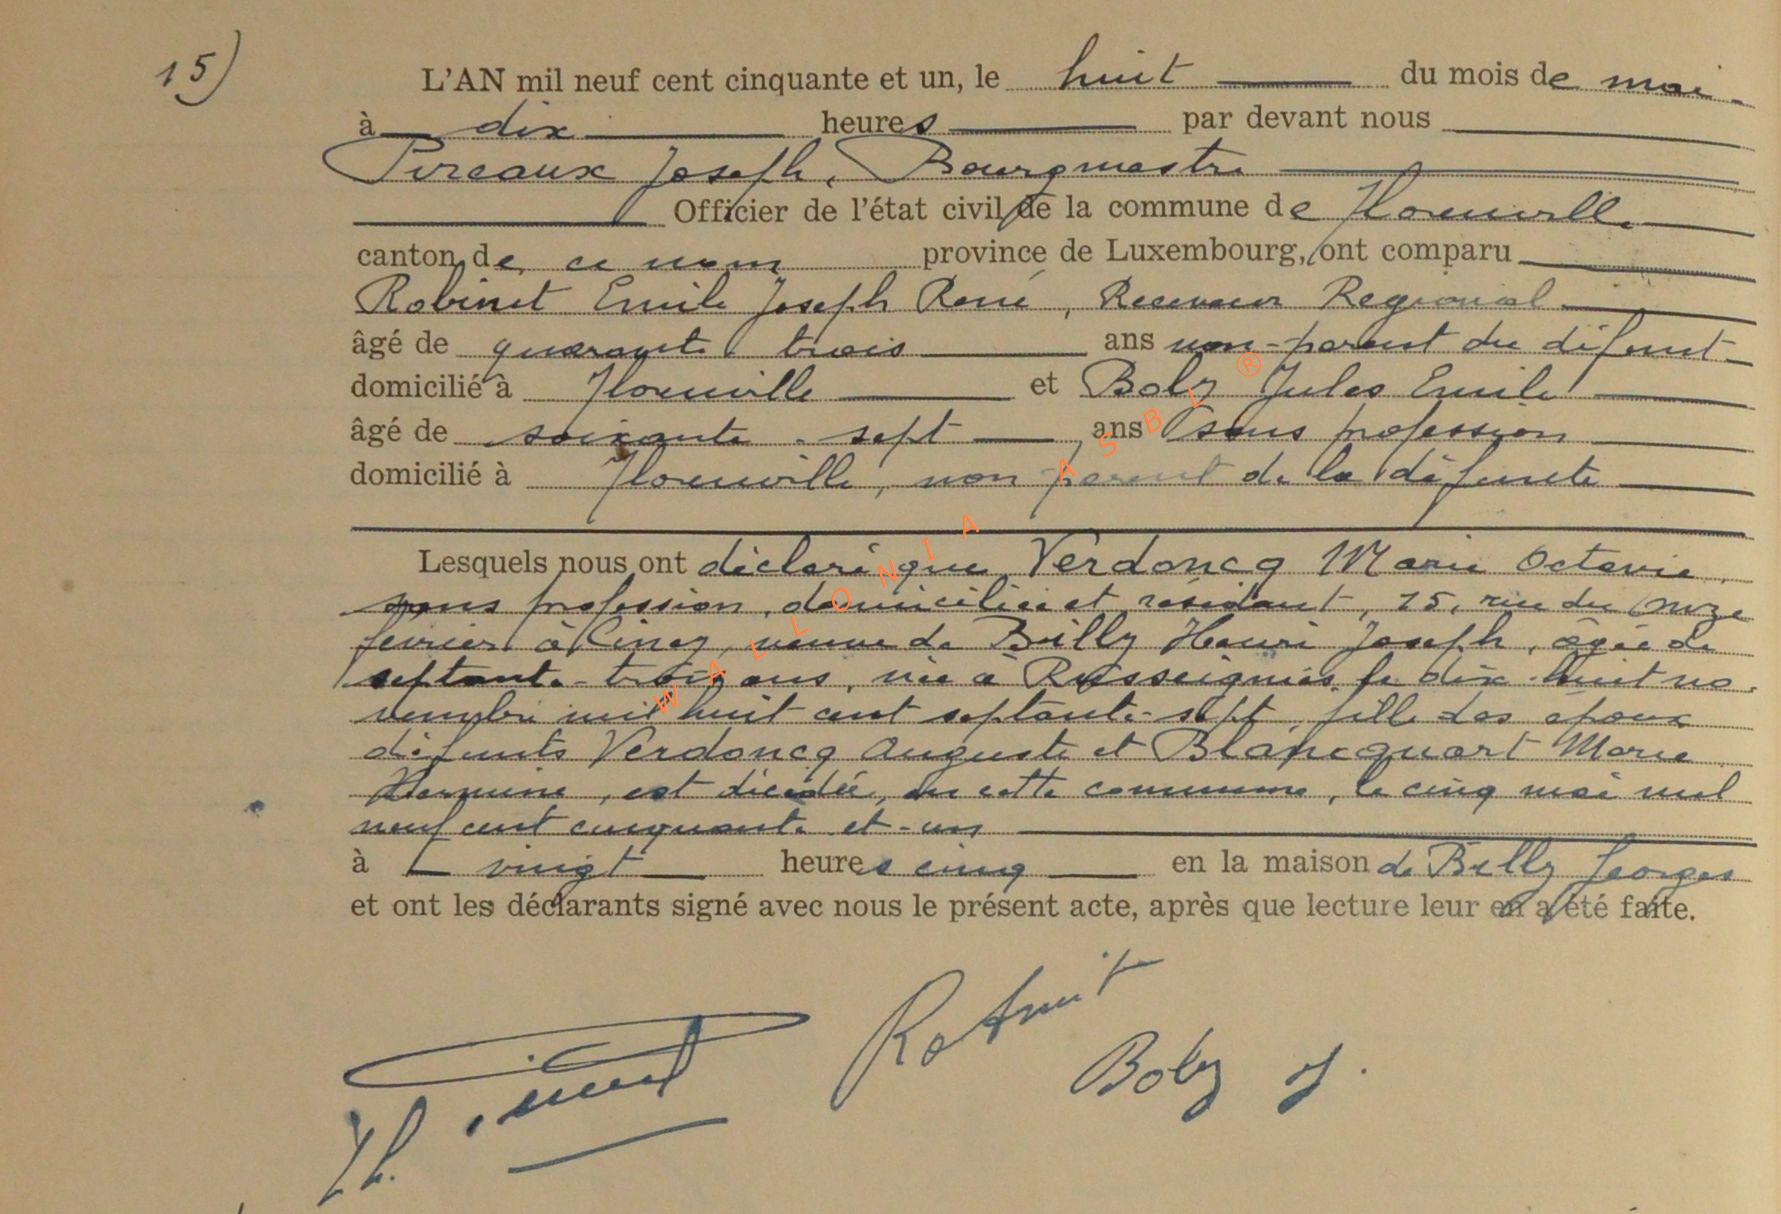 15)
L'AN mil neuf cent cinquante et un, le huit du mois de mai
à dix heures par devant nous
Pireaux Joseph, Bourgmestre
Officier de l'état civil de la commune de Florenville
canton de ce nom province de Luxembourg, ont comparu
Robinet Emile Joseph René, Receveur Régional
âgé de quarante trois ans non-parent du défunt
domicilié à Florenville et Boly Jules Emile
âgé de soixante-sept ans sans profession
domicilié à Florenville, non parent de la défunte
Lesquels nous ont déclaré que Verdoncq Marie Octavie,
sans profession, domiciliée et résidant, 15, rue du onze
février à Ciney, veuve de Billy Henri Joseph, âgée de
septante-trois ans, née à Russeignies le dix-huit no-
vembre mil huit cent septante-sept, fille des époux
défunts Verdoncq Auguste et Blancquart Marie
Hermine, est décédée, en cette commune, le cinq mai mil
neuf cent cinquante et-un
à vingt heures cinq en la maison de Billy Georges
et ont les déclarants signé avec nous le présent acte, après que lecture leur en a été faite.
Robinet
Boly J.
WALLONIA ASBL ®